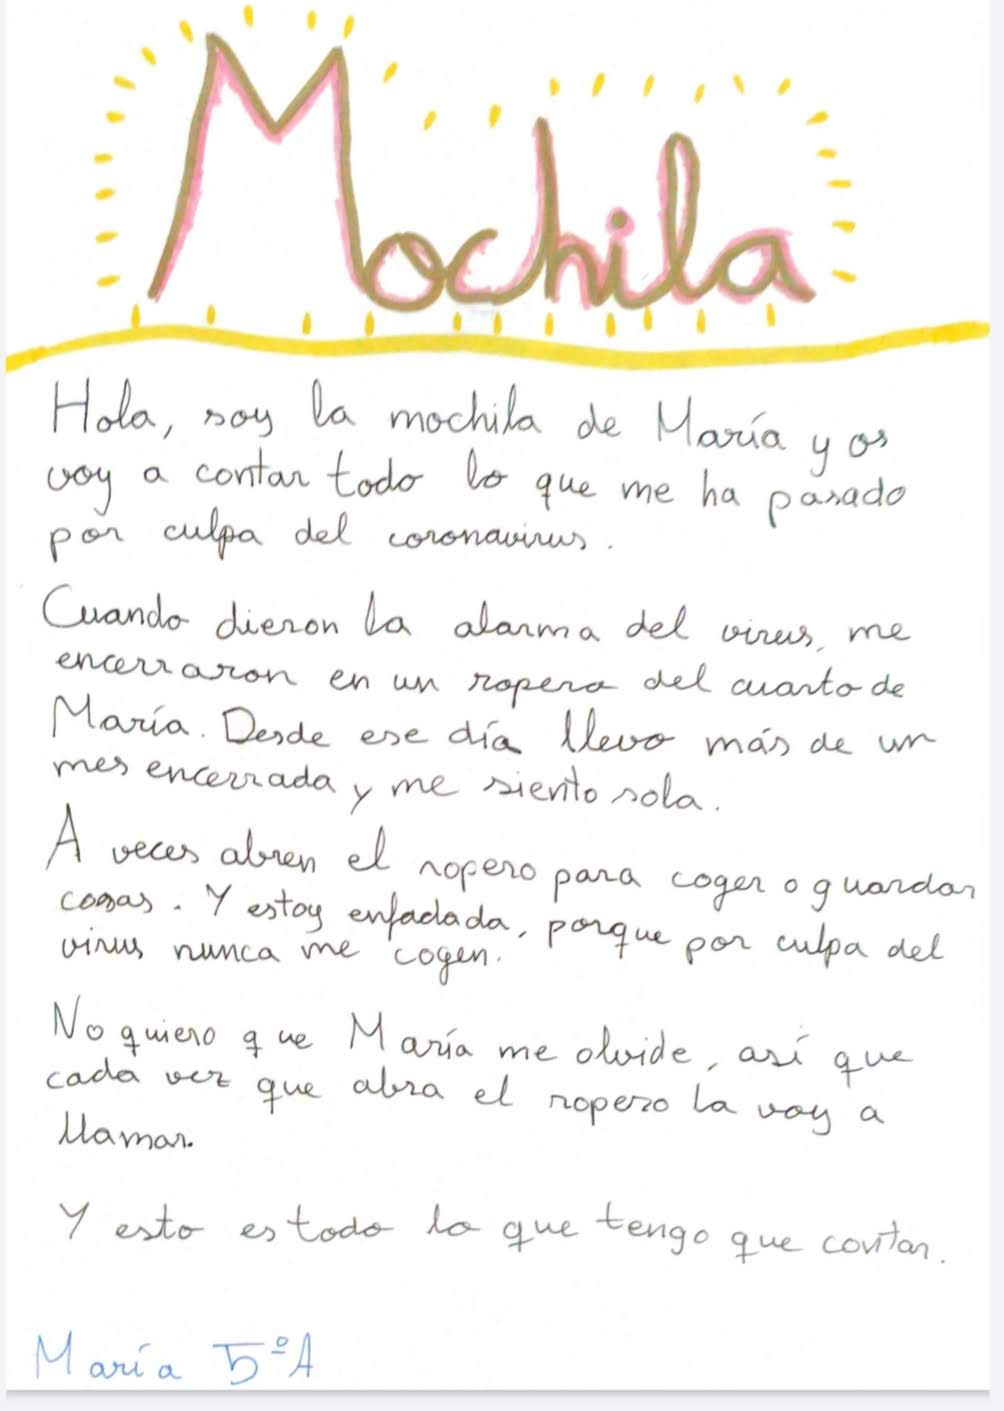 Mochila
Hola, soy la mochila de María y os
voy a contar todo lo que me ha pasado
por culpa del coronavirus.
Cuando dieron la alarma del virus, me
encerraron en un ropero del cuarto de
María. Desde ese día llevo más de un
mes encerrada y me siento sola.
A veces abren el ropero para coger o guardar
cosas. Y estoy enfadada, porque por culpa del
virus nunca me cogen.
No quiero que María me olvide, así que
cada vez que abra el ropero la voy a
llamar.
Y esto es todo lo que tengo que contar.
María 5ºA